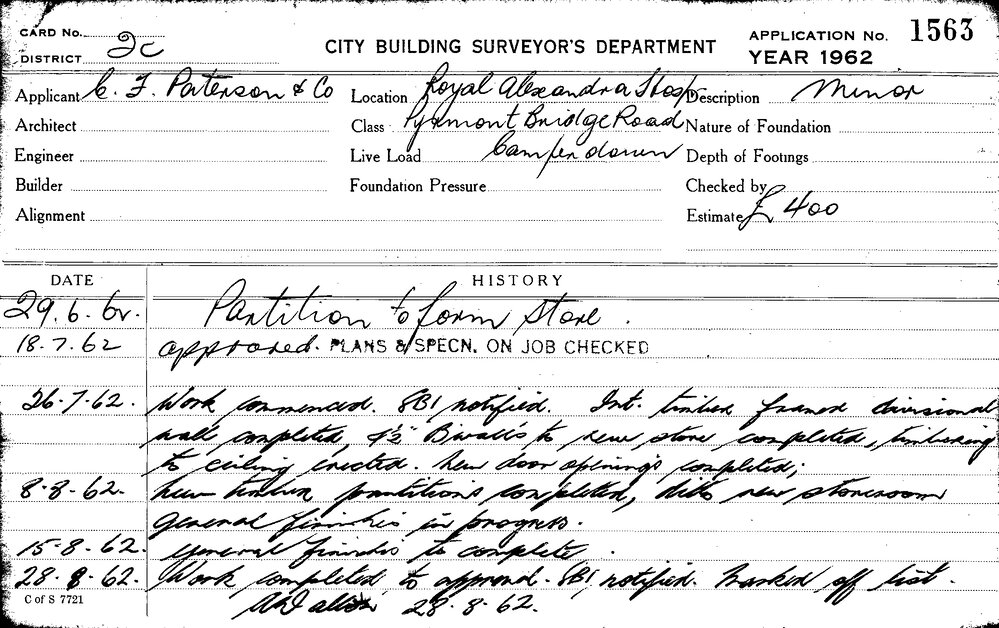 CARD No.
DISTRICT 2c
CITY BUILDING SURVEYOR'S DEPARTMENT
APPLICATION No. 1563
YEAR 1962
Applicant C. F. Paterson & Co Location Royal Alexandra Hosp Description Minor
Architect Class Pyrmont Bridge Road Nature of Foundation
Engineer Live Load Camperdown Depth of Footings
Builder Foundation Pressure Checked by
Alignment Estimate £400
DATE HISTORY
29.6.62. Partition to form Store.
18.7.62 approved. PLANS & SPECN. ON JOB CHECKED
26.7.62. Work commenced. SBI notified. Int. timber framed divisional
wall completed, 4½" Bwalls to new store completed, timbering
to ceiling erected. New door openings completed;
8.8.62. New timber partitions completed, ditto new storeroom
general finishes in progress.
15.8.62. general finishes to complete.
28.8.62. Work completed to approval. SBI notified. Marked off list.
28.8.62.
C of S 7721